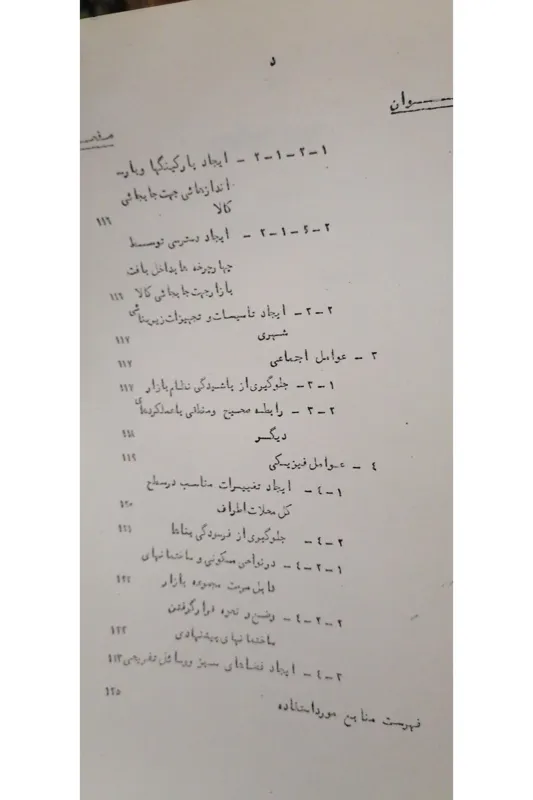 د
ـوان
صفحـ
۲-۱-۳-۱ - ایجاد پارکینگها و بار-
اندازهائی جهت جابجائی
کالا ۱۱۶
۲-۱-۴-۲ - ایجاد دسترسی توسط
چهارچرخه ها بداخل بافت
بازار جهت جابجائی کالا ۱۱۶
۲-۲ - ایجاد تاسیسات و تجهیزات زیربنائی
شهری ۱۱۷
۳ - عوامل اجتماعی ۱۱۷
۳-۱ - جلوگیری از پاشیدگی نظام بازار ۱۱۷
۳-۲ - رابطه صحیح ومنطقی باعملکردهای
دیگر ۱۱۸
۴ - عوامل فیزیکی ۱۱۹
۴-۱ - ایجاد تغییرات مناسب درسطح
کل محلات اطراف ۱۲۰
۴-۲ - جلوگیری از فرسودگی بناها ۱۲۱
۴-۲-۱ - درنواحی مسکونی و ساختمانهای
قابل مرمت مجموعه بازار ۱۲۲
۴-۲-۲ - وضع و نحوه قرارگرفتن
ساختمانهای پیشنهادی ۱۲۲
۴-۳ - ایجاد فضاهای سبز ووسائل تفریحی ۱۲۳
فهرست منابع مورداستفاده ۱۲۵